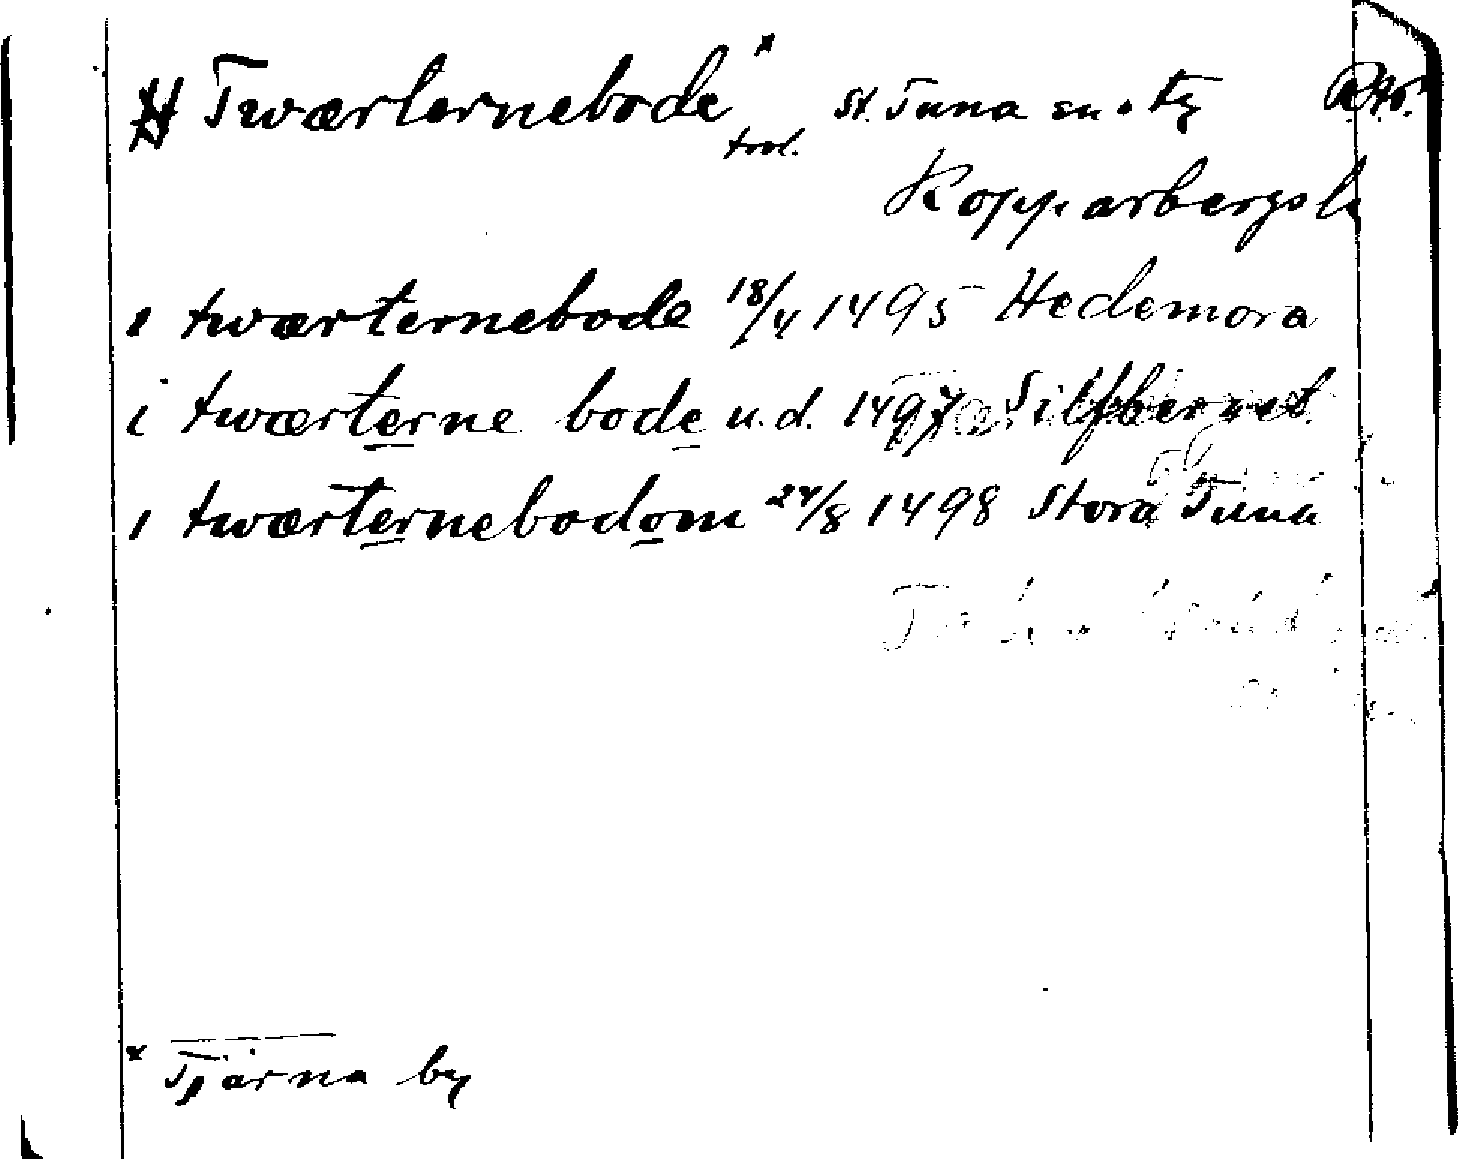 Twærternebode* St. Tuna sn o. tg
trol.
Kopparbergs l
i twærternebode 18/4 1495 Hedemora
i twærterne bode u.d. 1497 Silfberget
i twærternebodom 24/8 1498 Stora Tuna
* Tjärna by